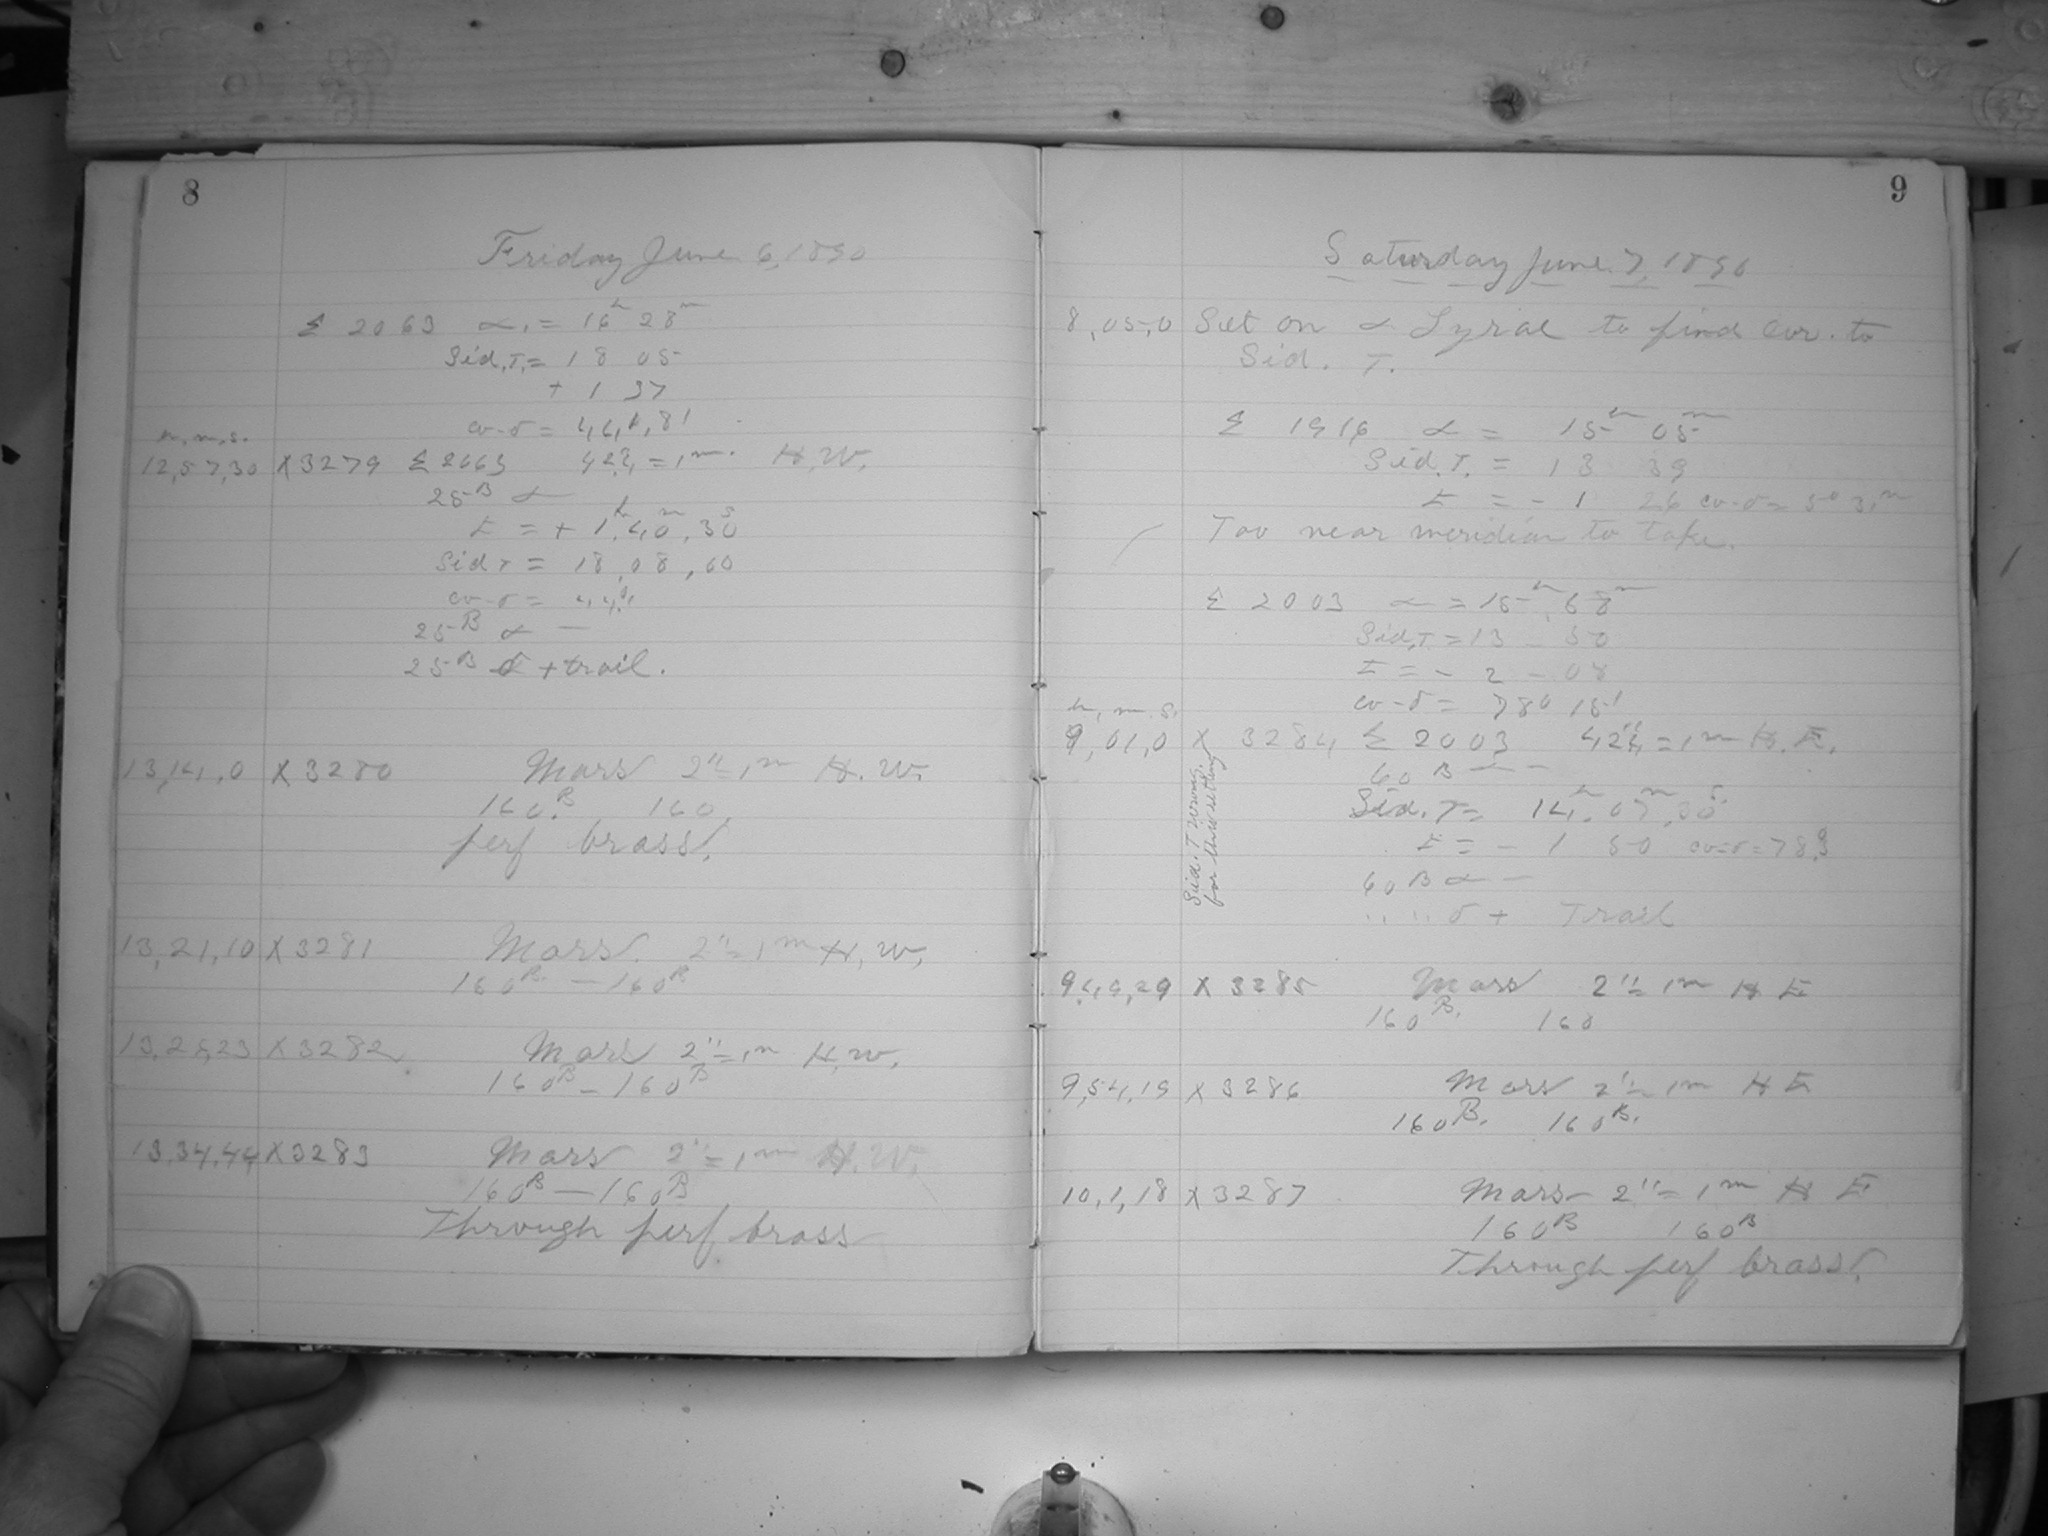 8
Friday June 6, 1890
Σ 2063 α = 16h 28m
Sid. T. = 18 05
+ 1 37
co-δ = 44°,81
h. m. s.
12,57,30 X3279 Σ 2063 42",4 = 1m. H.W.
25B α —
t = + 1h,40m,30s
Sid T = 18,08,00
co-δ =
25B α —
25B δ + trail.
13,14,0 X3280 Mars 2" = 1m H.W.
160B 160
perf brass.
13,21,10 X3281 Mars. 2" = 1m H.W.
160B — 160B
X3282 Mars 2" = 1m H.W.
160B — 160B
13,34,44 X3283 Mars 2" = 1m H.W.
160B — 160B
Through perf brass
9
Saturday June 7, 1890
8,05,0 Set on α Lyrae to find cor. to
Sid. T.
Σ 1916 α = 15h 05m
Sid. T. = 13 39
t = - 1 26 co-δ = 50
Too near meridian to take.
Σ 2003 α = 15h 58m
Sid. T = 13 50
t = - 2 - 08
co-δ = 78° 15'
h. m. s.
9,01,0 X 3284 Σ 2003 42",4 = 1m H.E.
60 B — —
Sid. T. wrong
for this setting
Sid. T = 14h.07m.30s
t = - 1 50 co-δ = 78,3
60 B α —
" " δ + Trail
9,49,29 X 3285 Mars 2" = 1m H E
160B. 160
9,54,19 X 3286 Mars 2" = 1m H E
160B. 160B.
10,1,18 X 3287 Mars 2" = 1m H E
160B 160B
Through perf brass.